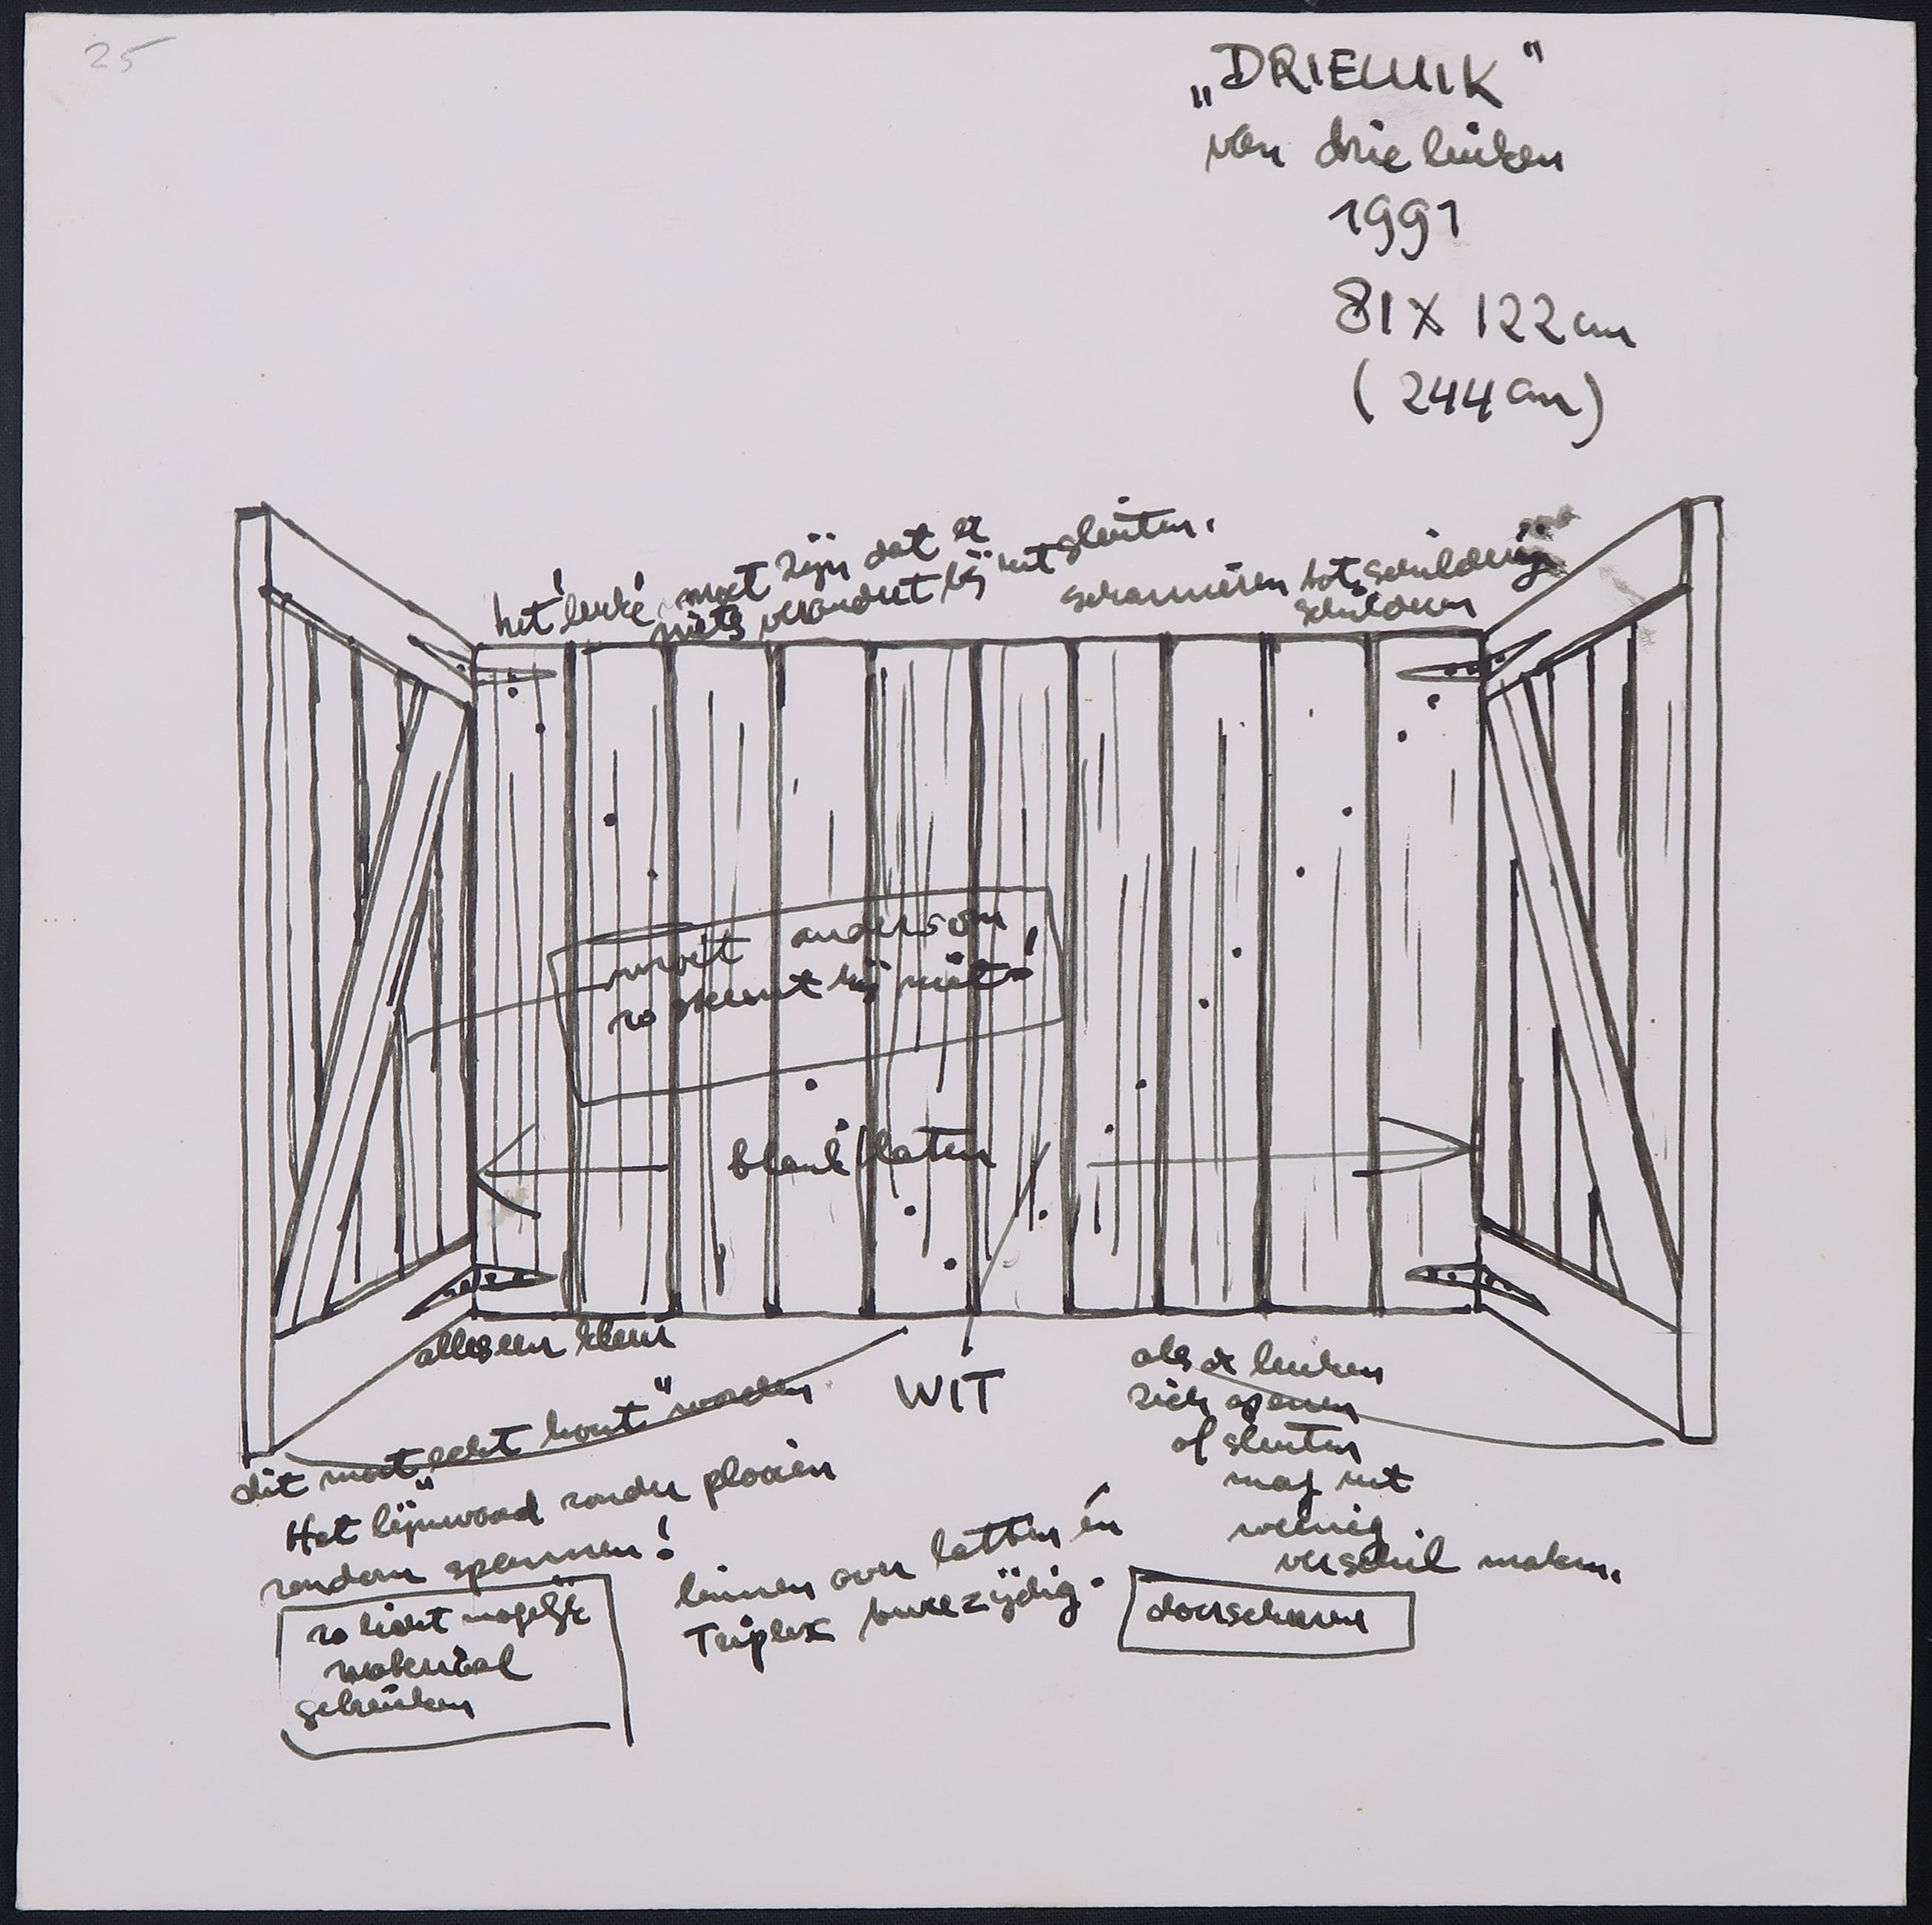 25
„DRIELUIK"
van drie luiken
1991
81 X 122 cm
(244 cm)
het 'leuke' moet zijn dat er
niets verandert bij het sluiten.
scharnieren tot schilderij
schilderen
nooit andersom
zo steunt hij niet!
blank laten
alles een kleur
WIT
dit moet „echt hout" worden
Het lijnwaad zonder plooien
rondom spannen!
zo licht mogelijk
materiaal
gebruiken
linnen over latten én
Triplex tweezijdig.
als de luiken
zich openen
of sluiten
mag het
weinig
verschil maken.
doorschuren